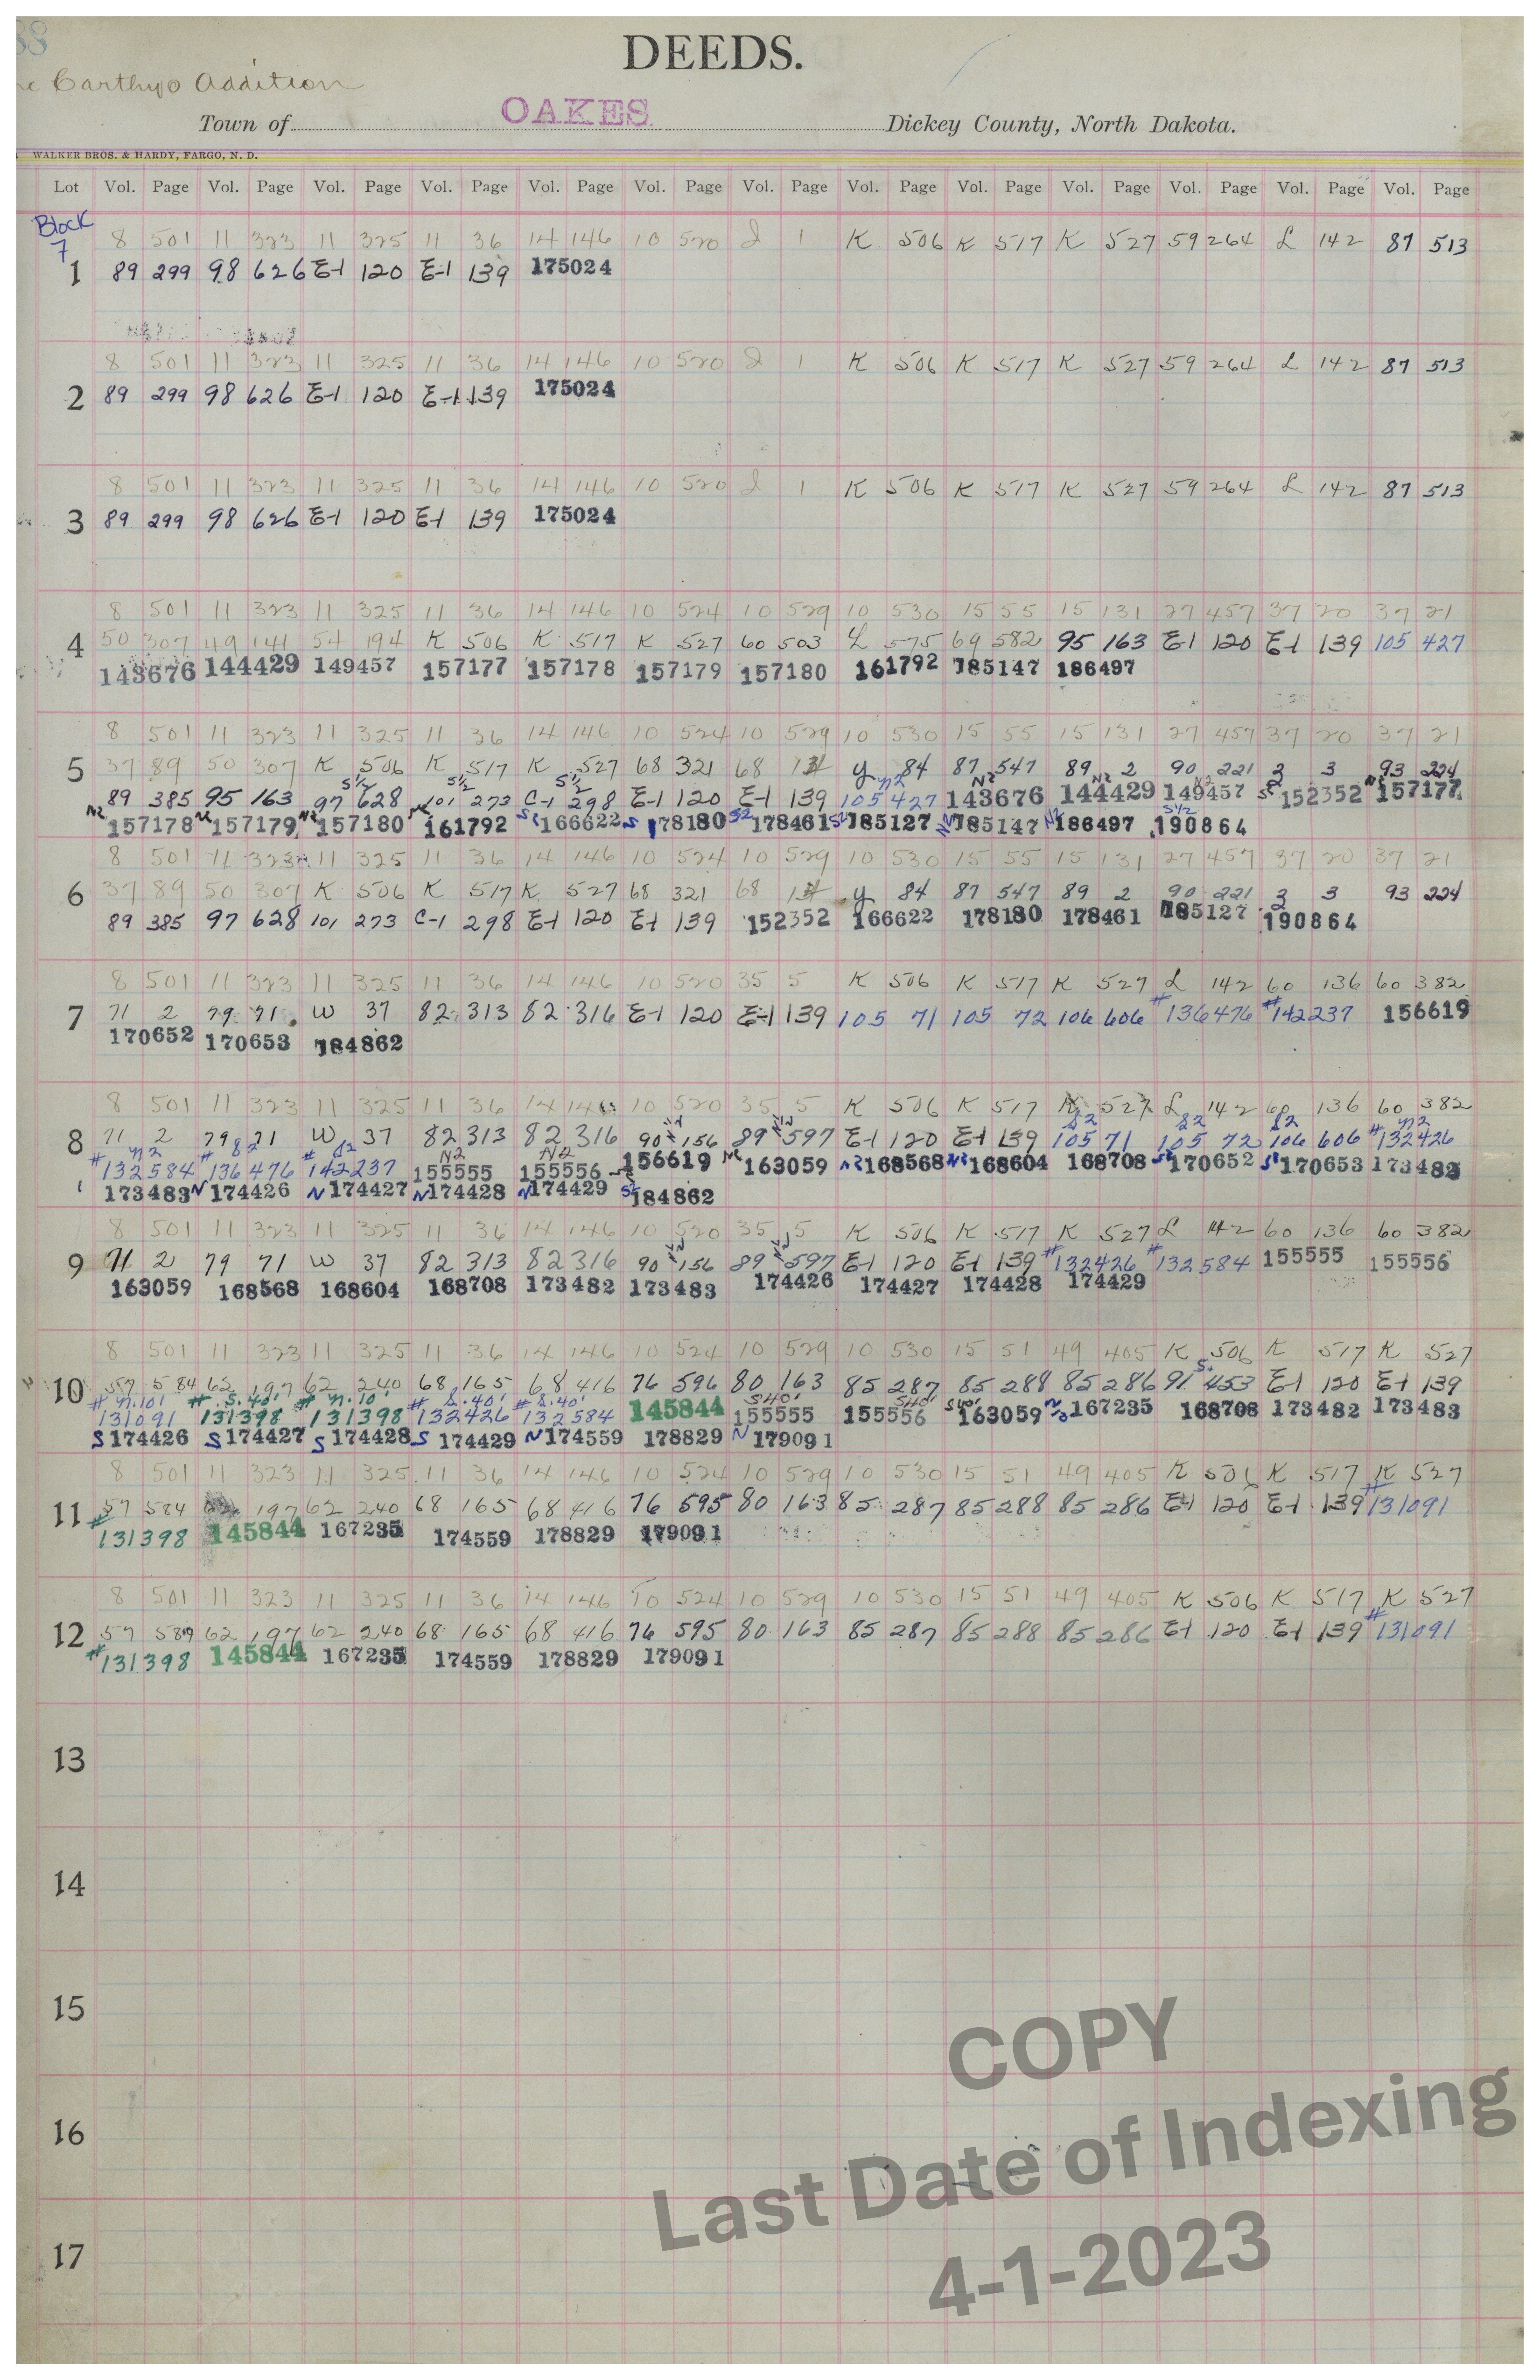 DEEDS.
Carthys Addition
Town of OAKES Dickey County, North Dakota.
WALKER BROS. & HARDY, FARGO, N. D.
Lot Vol. Page Vol. Page Vol. Page Vol. Page Vol. Page Vol. Page Vol. Page Vol. Page Vol. Page Vol. Page Vol. Page Vol. Page Vol. Page
Block
7
8 501 11 323 11 325 11 36 14 146 10 520 J 1 K 506 K 517 K 527 59 264 L 142 87 513
1 89 299 98 626 E-1 120 E-1 139 175024
8 501 11 323 11 325 11 36 14 146 10 520 J 1 K 506 K 517 K 527 59 264 L 142 87 513
2 89 299 98 626 E-1 120 E-1 139 175024
8 501 11 323 11 325 11 36 14 146 10 520 J 1 K 506 K 517 K 527 59 264 L 142 87 513
3 89 299 98 626 E-1 120 E-1 139 175024
8 501 11 323 11 325 11 36 14 146 10 524 10 529 10 530 15 55 15 131 27 457 37 20 37 21
4 50 307 49 141 54 194 K 506 K 517 K 527 60 503 L 575 69 582 95 163 E-1 120 E-1 139 105 427
143676 144429 149457 157177 157178 157179 157180 161792 185147 186497
8 501 11 323 11 325 11 36 14 146 10 524 10 529 10 530 15 55 15 131 27 457 37 20 37 21
5 37 89 50 307 K 506 K 517 K 527 68 321 68 Y 84 87 547 89 2 90 221 3 3 93 224
89 385 95 163 S½ 97 628 S½ 101 273 S½ C-1 298 E-1 120 E-1 139 N2 105 427 N2 143676 N2 144429 N2 149457 S2 152352 N2 157177
N2 157178 N2 157179 N2 157180 N2 161792 S2 166622 S 178180 S2 178461 S2 185127 N2 185147 N2 186497 S½ 190864
8 501 11 323 11 325 11 36 14 146 10 524 10 529 10 530 15 55 15 131 27 457 37 20 37 21
6 37 89 50 307 K 506 K 517 K 527 68 321 68 Y 84 87 547 89 2 90 221 3 3 93 224
89 385 97 628 101 273 C-1 298 E-1 120 E-1 139 152352 166622 178180 178461 185127 190864
8 501 11 323 11 325 11 36 14 146 10 520 35 5 K 506 K 517 K 527 L 142 60 136 60 382
7 71 2 79 71 W 37 82 313 82 316 E-1 120 E-1 139 105 71 105 72 106 606 #136476 #142237 156619
170652 170653 184862
8 501 11 323 11 325 11 36 14 146 10 520 35 5 K 506 K 517 K 527 L 142 60 136 60 382
8 71 2 79 71 W 37 82 313 82 316 90 156 89 597 E-1 120 E-1 139 S2 105 71 S2 105 72 S2 106 606 N2 #132426
N2 #132584 S2 #136476 S2 #142237 N2 155555 N2 155556 S2 156619 N2 163059 N2 168568 N2 168604 168708 S2 170652 S2 170653 173482
173483 N 174426 N 174427 N 174428 N 174429 S2 184862
8 501 11 323 11 325 11 36 14 146 10 520 35 5 K 506 K 517 K 527 L 142 60 136 60 382
9 71 2 79 71 W 37 82 313 82 316 90 156 89 597 E-1 120 E-1 139 #132426 #132584 155555 155556
163059 168568 168604 168708 173482 173483 174426 174427 174428 174429
8 501 11 323 11 325 11 36 14 146 10 524 10 529 10 530 15 51 49 405 K 506 K 517 K 527
10 57 584 62 197 62 240 68 165 68 416 76 596 80 163 85 287 85 288 85 286 S. 91 453 E-1 120 E-1 139
# N.10' 131091 # S.40' 131398 # N.10' 131398 # S.40' 132426 # S.40' 132584 145844 S40' 155555 S40' 155556 S40' 163059 N10 167235 168708 173482 173483
S 174426 S 174427 S 174428 S 174429 N 174559 178829 N 179091
8 501 11 323 11 325 11 36 14 146 10 524 10 529 10 530 15 51 49 405 K 506 K 517 K 527
11 57 584 197 62 240 68 165 68 416 76 595 80 163 85 287 85 288 85 286 E-1 120 E-1 139 #131091
#131398 145844 167235 174559 178829 179091
8 501 11 323 11 325 11 36 14 146 10 524 10 529 10 530 15 51 49 405 K 506 K 517 K 527
12 57 62 197 62 240 68 165 68 416 76 595 80 163 85 287 85 288 85 286 E-1 120 E-1 139 #131091
#131398 145844 167235 174559 178829 179091
13
14
15
16
17
COPY
Last Date of Indexing
4-1-2023